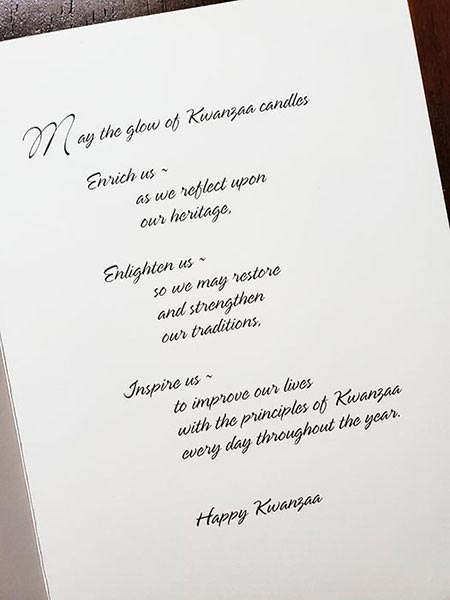 May the glow of Kwanzaa candles
Enrich us ~
as we reflect upon
our heritage,
Enlighten us ~
so we may restore
and strengthen
our traditions,
Inspire us ~
to improve our lives
with the principles of Kwanzaa
every day throughout the year.
Happy Kwanzaa